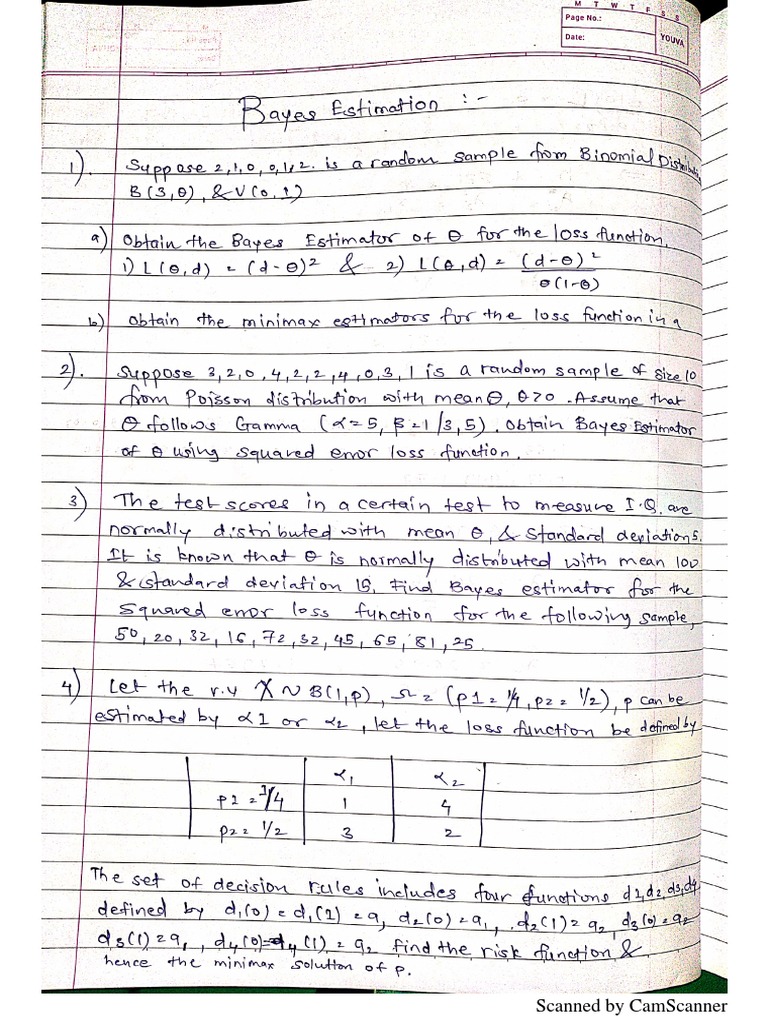 M T W T F S S
Page No.:
Date:
YOUVA
Bayes Estimation :-
1). Suppose 2,1,0,0,1,2. is a random sample from Binomial Distributi
B(3,θ), & V(0,1)
a) Obtain the Bayes Estimator of θ for the loss function,
1) L(θ,d) = (d-θ)² & 2) L(θ,d) = (d-θ)² / θ(1-θ)
b) Obtain the minimax estimators for the loss function in a
2). Suppose 3,2,0,4,2,2,4,0,3,1 is a random sample of size 10
from Poisson distribution with mean θ, θ>0. Assume that
θ follows Gamma (α=5, β=1/3,5). Obtain Bayes Estimator
of θ using squared error loss function.
3) The test scores in a certain test to measure I.Q. are
normally distributed with mean θ, & standard deviation 5.
It is known that θ is normally distributed with mean 100
& standard deviation 15, Find Bayes estimator for the
squared error loss function for the following sample,
50, 20, 32, 16, 72, 32, 45, 65, 81, 25.
4) Let the r.v X ~ B(1,p), Ω = (p1 = 1/4, p2 = 1/2), p can be
estimated by α1 or α2, let the loss function be defined by
α1 α2
p1 = 1/4 1 4
p2 = 1/2 3 2
The set of decision rules includes four functions d1,d2,d3,d4
defined by d1(0) = d1(1) = a, d2(0) = a1, d2(1) = a2, d3(0) = a2
d3(1) = a1, d4(0) = d4(1) = a2 find the risk function &
hence the minimax solution of p.
Scanned by CamScanner